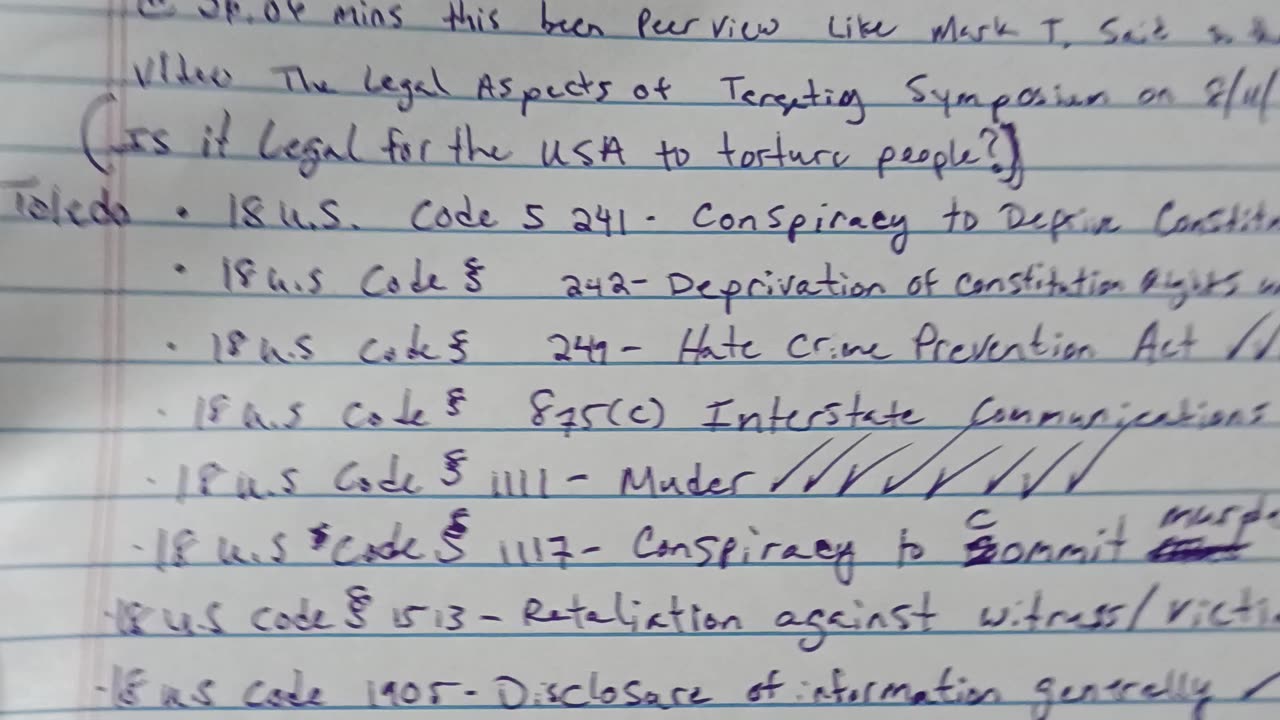 mins this been Peer view Like Mark T. Said
Video The Legal Aspects of Tergeting Symposium on 8/11/
(Is it Legal for the USA to torture people?)
Toledo • 18 U.S. Code S 241 - Conspiracy to Deprive Constit
• 18 U.S Code § 242 - Deprivation of Constitution Rights
• 18 U.S Code § 249 - Hate Crime Prevention Act ✓✓
• 18 U.S Code § 875(c) Interstate Communications
• 18 U.S Code § 1111 - Muder ✓✓✓✓✓✓✓✓
• 18 U.S Code § 1117 - Conspiracy to Commit
• 18 U.S Code § 1513 - Retaliation against witness/victi
• 18 U S Code 1905 - Disclosure of information generally ✓